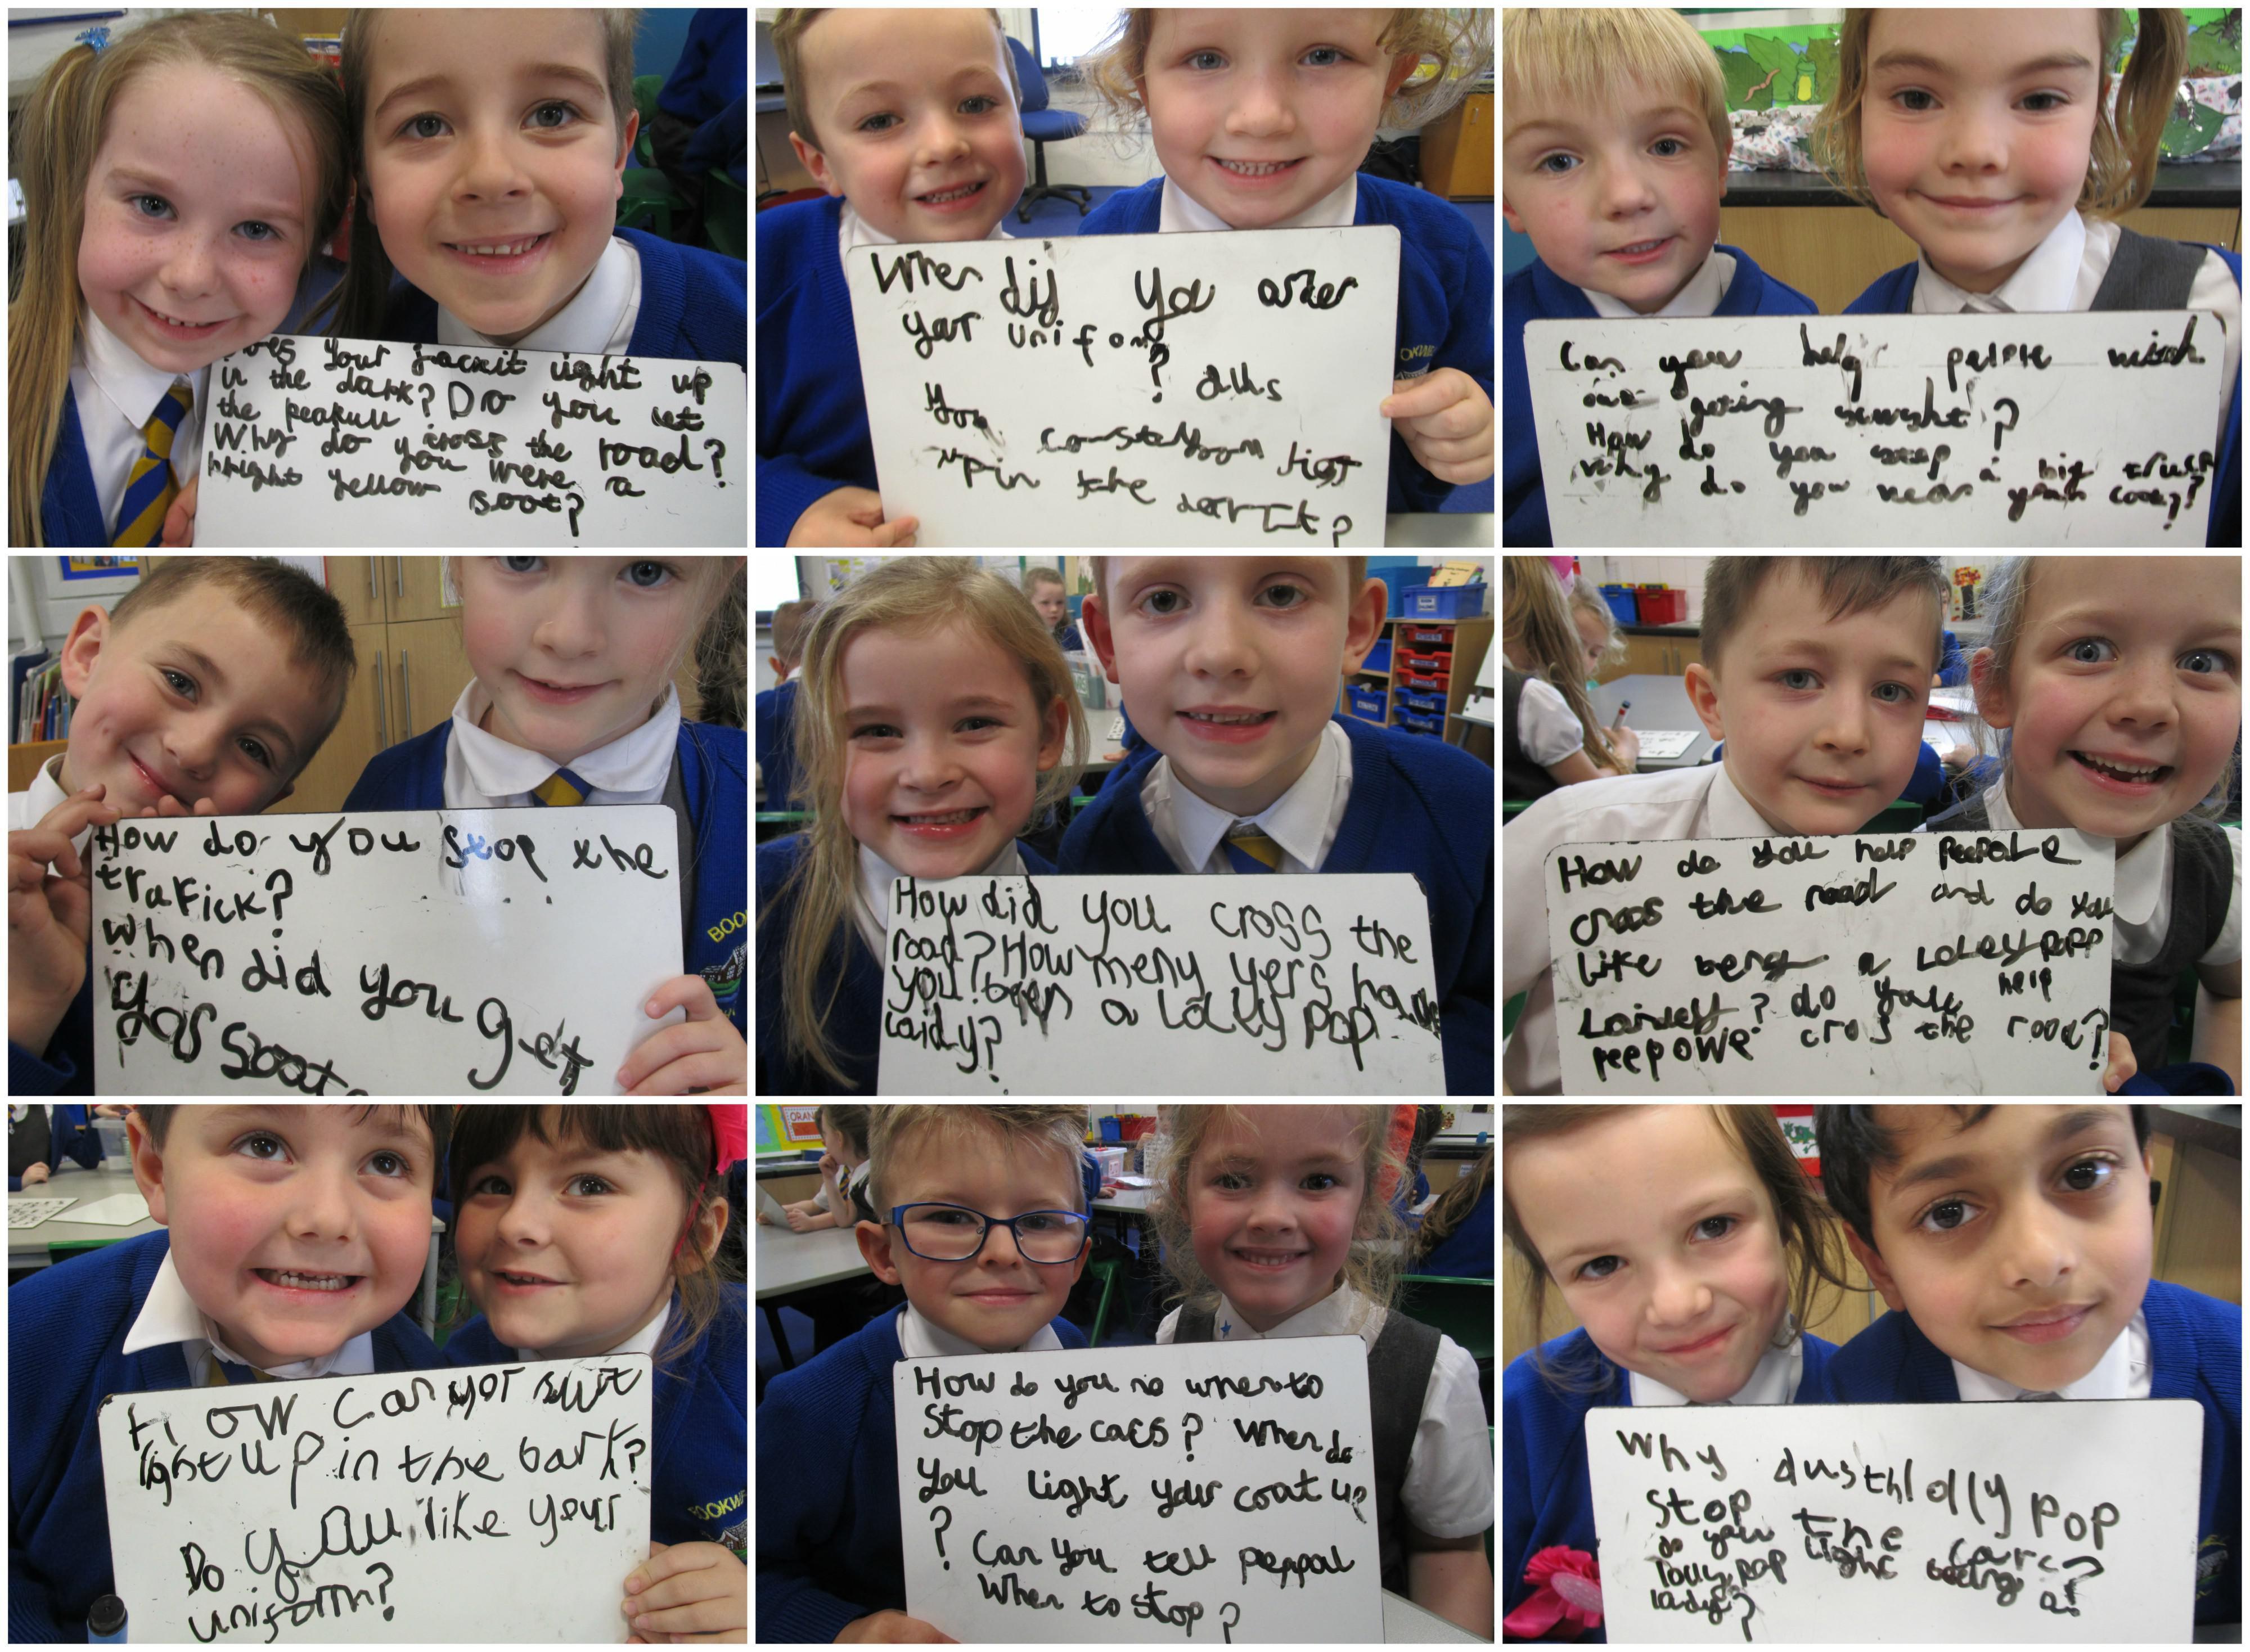 your jackit light up
in the dark? Do you let
the peakull cross the road?
Why do you were a
bright yellow soot?
When did you
yor uniform?
you
in the
Can you help
going
How do you stop a big truck
Why do you wear your coat?
How do you stop the
trafick?
When did you get
yor soot
BOOK
How did you cross the
road? How meny yers have
you been a loley pop
laidy?
How do you help peepale
cros the road and do you
like being a Loley popp
Laidey? do you help
peepowe cros the road?
How can yor suit
light up in the bark?
Do you like your
uniform?
OOKW
How do you no when to
stop the cars? When do
you light your coat up
?
Can you tell peppal
When to stop?
ORAN
Why dusth lolly pop
stop the cars?
do you
lolly pop being a
lady?